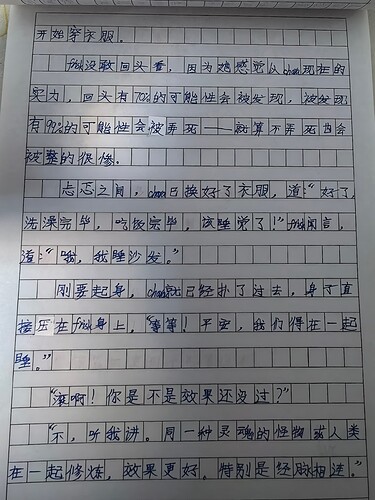 开始穿衣服。
frisk没敢回头看，因为她感觉以chara现在的
实力，回头有70%的可能性会被发现，被发现
有99%的可能性会被弄死——就算不弄死也会
被整的很惨。
忐忑之间，chara已换好了衣服，道：“好了，
洗澡完毕，吃饭完毕，该睡觉了！”frisk闻言，
道：“哦，我睡沙发。”
刚要起身，chara就已经扑了过去，身子直
接压在frisk身上。“等等！不定，我们得在一起
睡。”
“滚啊！你是不是效果还没过？”
“不，听我讲。同一种灵魂的怪物或人类
在一起修炼，效果更好。特别是经脉相连。”